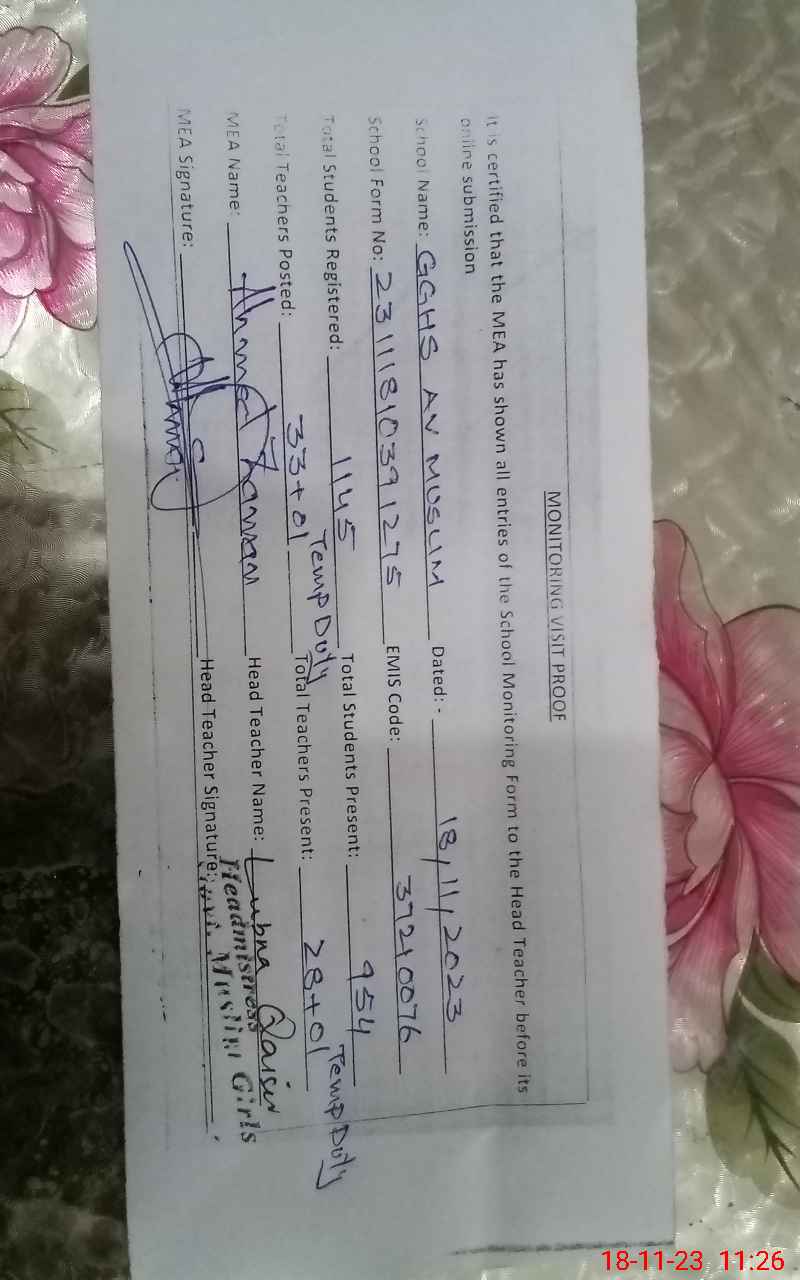 MONITORING VISIT PROOF
It is certified that the MEA has shown all entries of the School Monitoring Form to the Head Teacher before its
online submission
School Name: GGHS AV MUSLIM Dated: - 18/11/2023
School Form No: 23111810391275 EMIS Code: 37240076
Total Students Registered: 1145 Total Students Present: 954
Total Teachers Posted: 33+01 Temp Duty Total Teachers Present: 28+01 Temp Duty
MEA Name: Ahmed Zaman Head Teacher Name: Lubna Qaiser
MEA Signature: Head Teacher Signature:
Headmistress
Muslim Girls
18-11-23 11:26